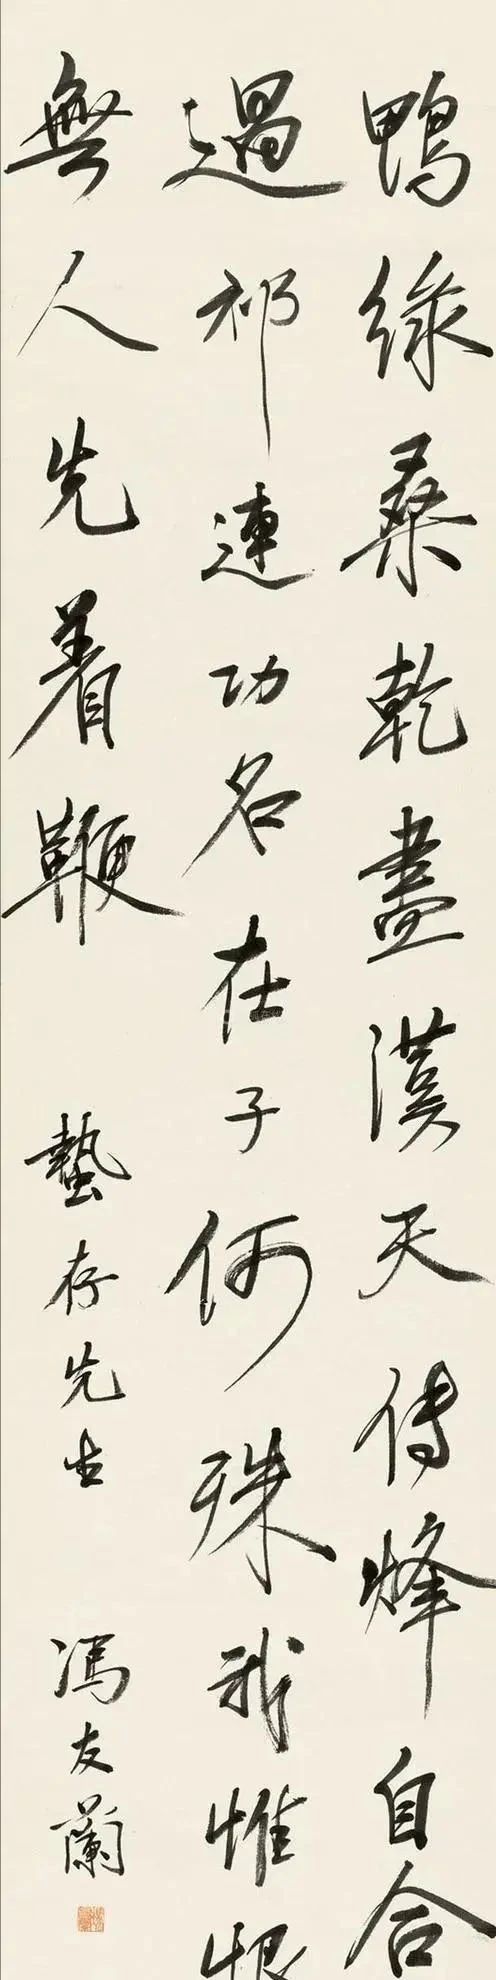 鴨綠桑乾盡漢天傳烽自合
過祁連功名在子何殊我惟恨
無人先着鞭
蟄存先生
馮友蘭